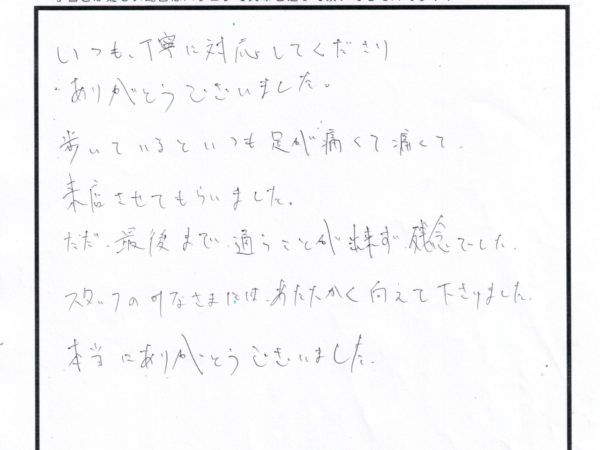 いつも、丁寧に対応してくださり
ありがとうございました。
歩いているといつも足が痛くて痛くて、
来店させてもらいました。
ただ、最後まで、通うことが出来ず残念でした。
スタッフのみなさまには、あたたかく向えて下さりました。
本当にありがとうございました。